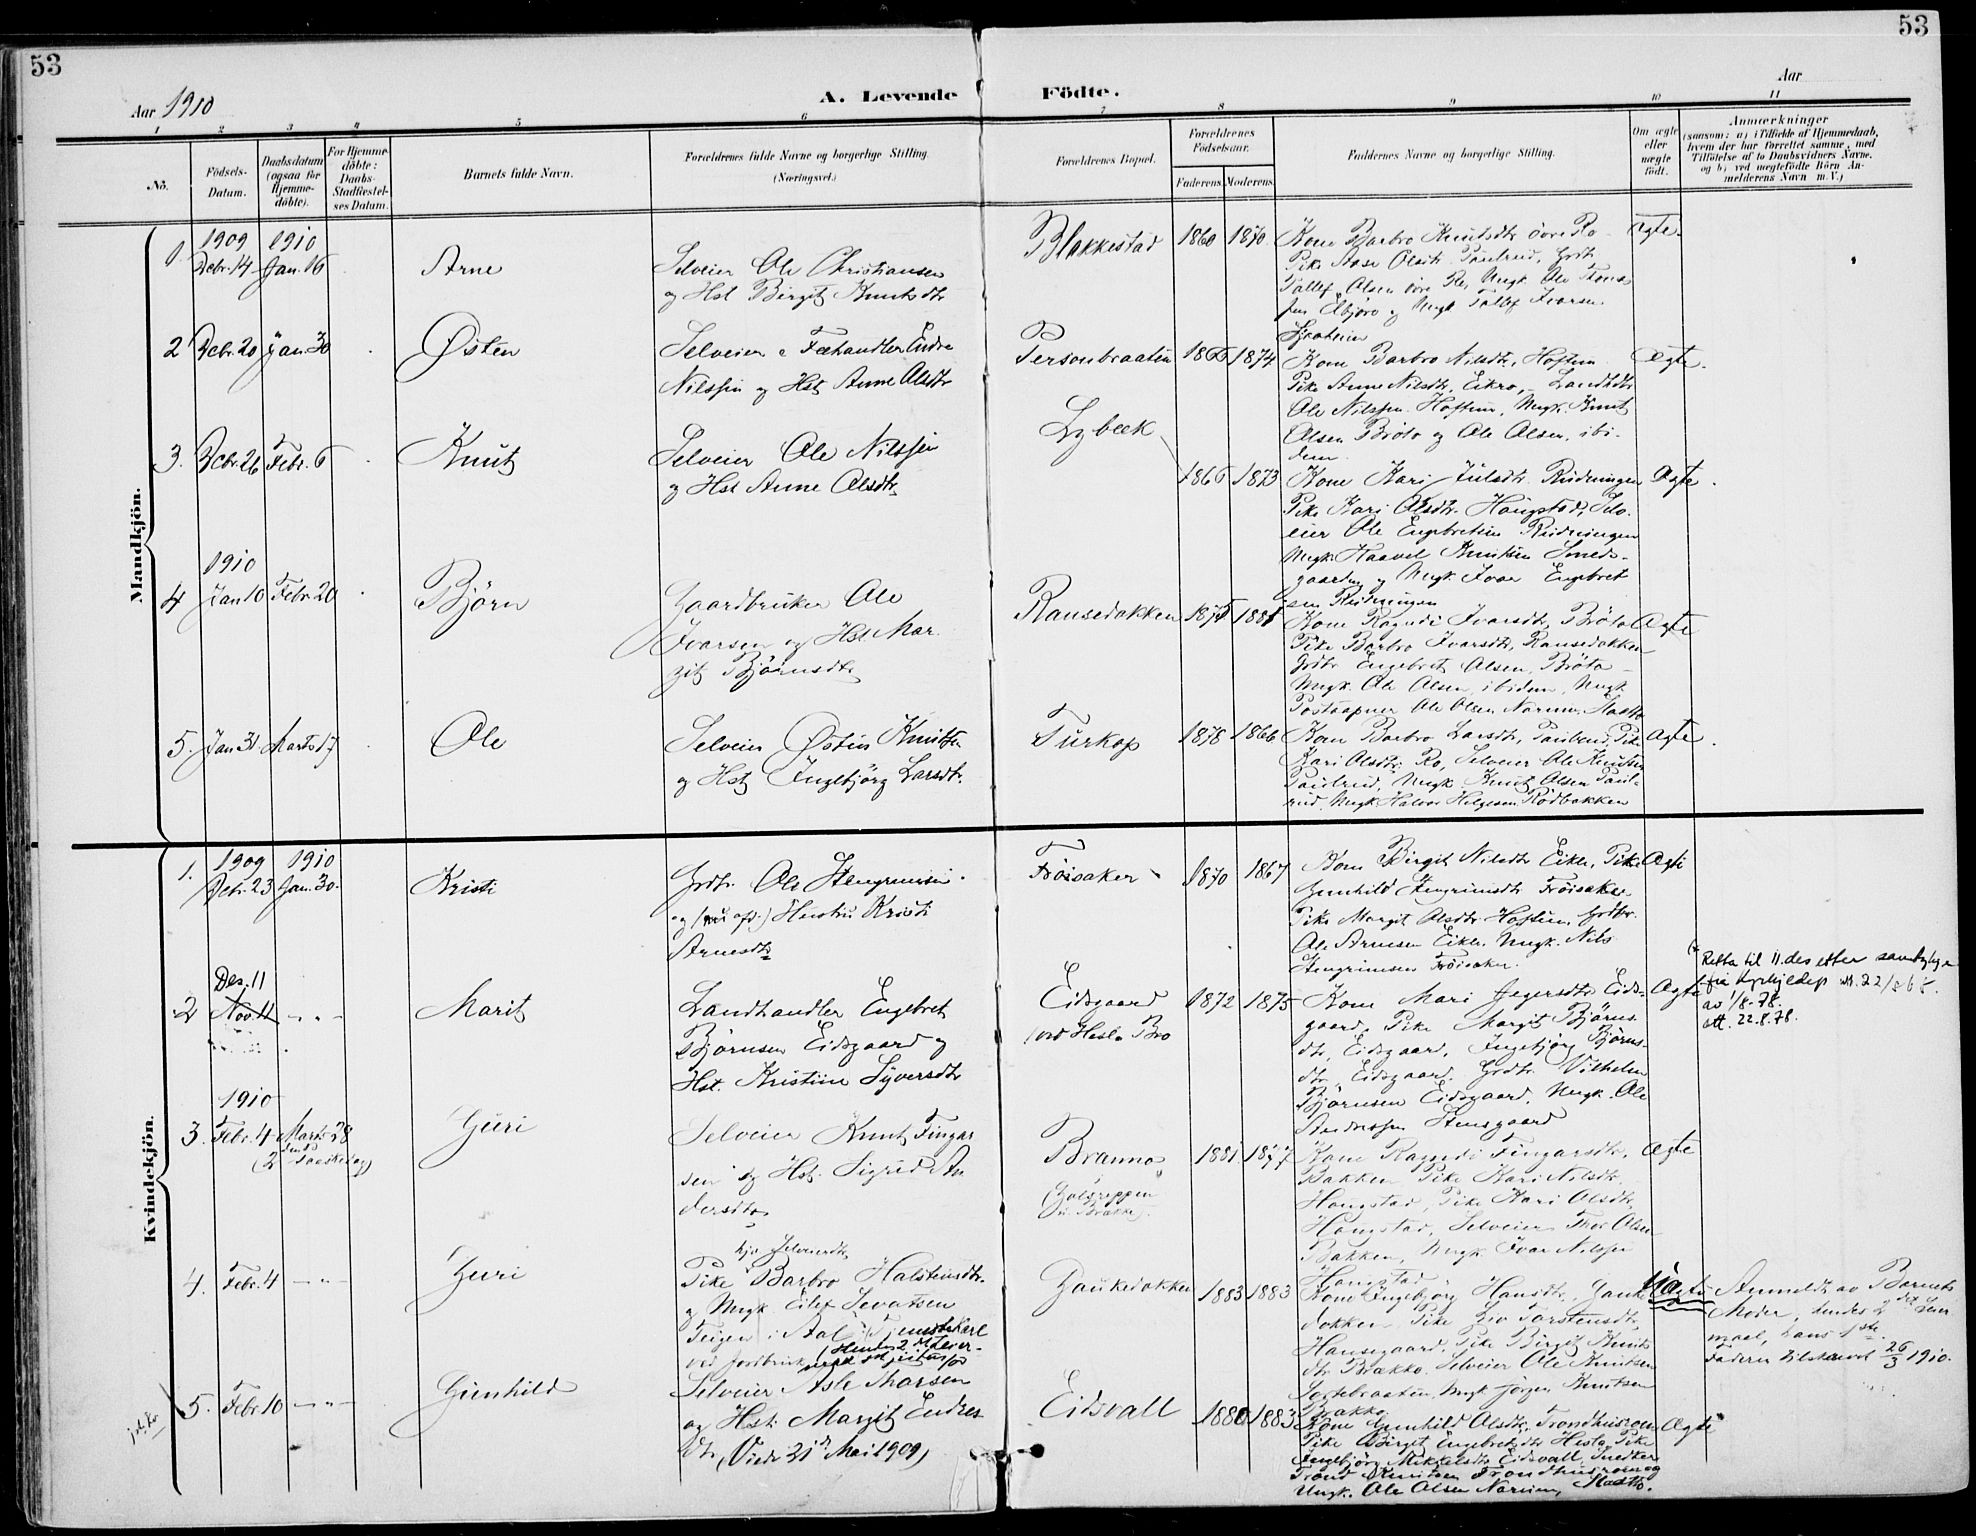 53
53
Aar 1910
A. Levende
Födte.
Aar
1
2
3
4
5
6
7
8
9
10
11
No.
Födsels-
Datum.
Daabsdatum
(ogsaa for
Hjemme-
döbte).
For Hjemme-
döbte:
Daabs-
Stadfæstel-
ses Datum.
Barnets fulde Navn.
Forældrenes fulde Navne og borgerlige Stilling.
(Næringsvei.)
Forældrenes Bopæl.
Forældrenes
Födselsaar.
Faderens
Moderens
Faddernes Navne og borgerlige Stilling.
Om ægte
eller
uægte
født.
Anmærkninger
(saasom: a) i Tilfælde af Hjemmedaab,
hvem der har forrettet samme, med
Tilföielse af to Daabsvidners Navne,
og b) ved uægtefödte Börn An-
melderens Navn m. V.)
Mandkjön.
1.
1909
Debr. 14
1910
Jan. 16
Arne
Selveier Ole Christiansen
og Hst Birgit Knutsdtr
Blakkestad
1860
1870
Kone Barbro Knutsdtr övre Ro
Pike Aase Olsdtr. Paulrud, Grdb.
Tollef Olsen övre Ro, Ungk Ole
og Ungk Tollef Ivarsen
Ægte.
2
Debr. 20
Jan. 30
Østen
Selveier & Fæhandler Endre
Nilssen og Hst Anne Olsdtr
Personbraaten
1865
1874
Kone Barbro Nilsdtr, Hoftun
Pike Anne Nilsdtr, Eikro, Landhdlr
Ole Nilssen Hoftun, Ungk. Knut
Olsen Bröto og Ole Olsen, ibi-
dem.
Ægte.
3.
Debr. 26
Febr. 6
Knut
Selveier Ole Nilssen
og Hst Anne Olsdtr.
Lybeck
1866
1873
Kone Kari Juelsdtr. Rudningen
Pike Kari Olsdtr. Haugstad, Selv-
eier Ole Engebretsen Rudningen
Ungk Haavel Knutsen Smeds-
gaarden og Ungk Ivar Engebret
sen Rudningen
Ægte.
4
1910
Jan 10
Febr. 20
Björn
Gaardbruker Ole
Ivarsen og Hst Mar-
git Björnsdtr
Ransedokken
1875
1881
Kone Ragndi Ivarsdtr, Bröto
Pike Barbro Ivarsdtr, Ransedokken
Grdbr Engebret Olsen, Bröto
Ungk. Ole Olsen, ibidem, Ungk
Postaapner Ole Olsen Narum
Ægte
5.
Jan 31
Marts 17
Ole
Selveier Østen Knutsen
og Hst Ingebjörg Larsdtr.
Turkop
1878
1866
Kone Barbro Larsdtr, Paulrud, Pike
Kari Olsdtr. Ro, Selveier Ole Knutsen
Paulrud, Ungk. Knut Olsen Paul-
rud, Ungk Halvor Helgesen Rödbakken
Ægte.
Kvindekjön.
1.
1909
Debr. 23
1910
Jan. 30.
Kristi
Grdbr. Ole Stengrimsen
og (nu afd.) Hustru Kristi
Arnesdtr
Tröisaker
1870
1867
Kone Birgit Nilsdtr Eikle, Pike
Gunhild Stengrimsdtr Tröisaker
Pike Margit Olsdtr Hoftun, Grdbr.
Ole Arnesen Eikle, Ungk. Nils
Stengrimsen Tröisaker.
Ægte
2
Des. 11
Nov. 11
- " -
Marit
Landhandler Engebret
Björnsen Eidsgaard og
Hst. Kristine Syversdtr
Eidsgaard
(ved Hesla Bro
1872
1875
Kone Mari Jegersdtr Eids-
gaard, Pike Margit Björns-
dtr, Eidsgaard, Ingebjörg Björns-
dtr Eidsgaard. Grdbr. Vilhelm
Björnsen Eidsgaard, Ungk. Ole
Andressen Stensgaard
Ægte
Retta til 11. des etter samtykkje
frå Kyrkjedep. nr. 22/
av 1/8-78.
att. 22.8.78.
3.
1910
Febr. 4
Marts 28
(2 Paaskedag)
Guri
Selveier Knut Fingar
sen og Hst. Sigrid An
dersdtr
Branno
1881
1877
Kone Ragndi Fingarsdtr,
Bakken Pike Kari Nilsdtr.
Haugstad, Pike Kari Olsdtr,
Haugstad, Selveier Thor Olsen
Bakken, Ungk Ivar Nilssen
Haugstad
Ægte
4.
Febr. 4
- " -
Guri
Pike Barbro Halsteinsdtr.
og Ungk. Eilef Sevatsen
Teigen i Aal
Gaukedokken
1883
1883
Kone Ingebjörg Hansdtr, Gauke
dokken Pike Liv Torstensdtr,
Hansegaard, Pike Birgit Knuts
dtr Brakko. Selveier Ole Knutsen
Sortebraaten, Ungk Jörgen Knutsen
Brakko
Uægte
Anmeldt av Barnets
Moder, hendes 2det Leier
maal, hans 1ste.
Faderen tilskrevet 26/3 1910.
5.
Febr 10
- " -
Gunhild
Selveier Asle Larsen
og Hst. Margit Endres
dtr, (Viede 21de Mai 1909)
Eidsvall
1880
1883
Kone Gunhild Olsdtr, Trondhusroen
Pike Birgit Engebretsdtr Hesla, Pike
Ingebjörg Mikkelsdtr Eidsvall, Snedker
Trond Knutsen Trondhusroen og
Ungk. Ole Olsen Narum,
Ægte